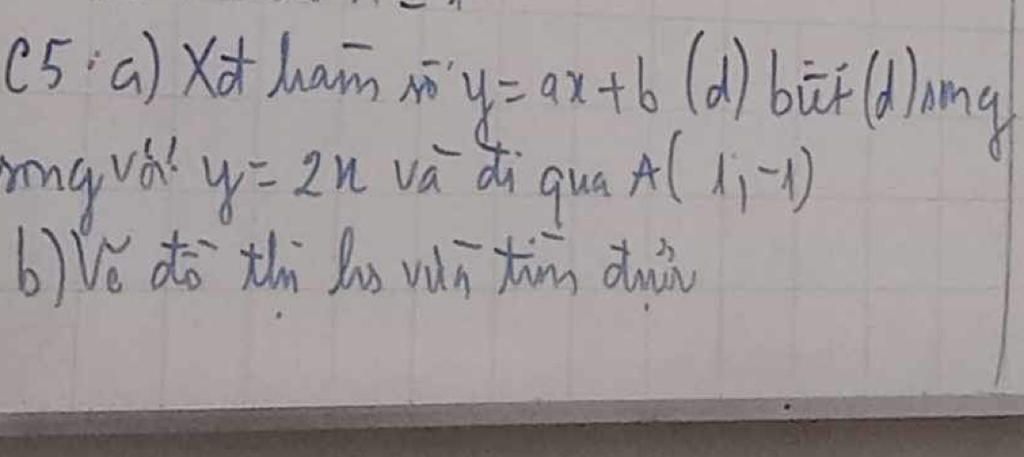 C5: a) Xđ hàm số y = ax + b (d) biết (d) song
song với y = 2x và đi qua A( 1; -1)
b) Vẽ đồ thị hs vừa tìm được